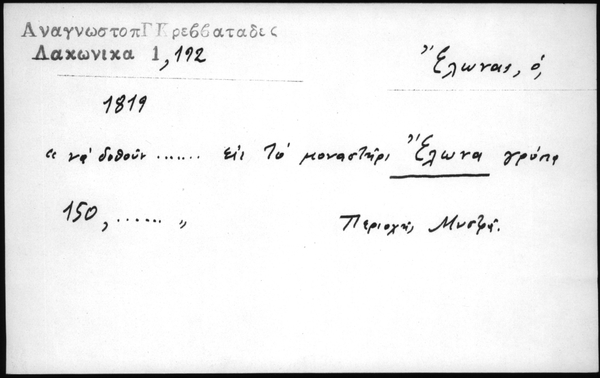 ΑναγνωστοπΓ Κρεββαταδες
Λακωνικα 1,192
Ἕλωνας, ὁ,
1819
« νά δοθοῦν ....... εἰς τό μοναστῆρι Ἕλωνα γρόσια
150, ...... „
Περιοχή, Μυστρᾶ.